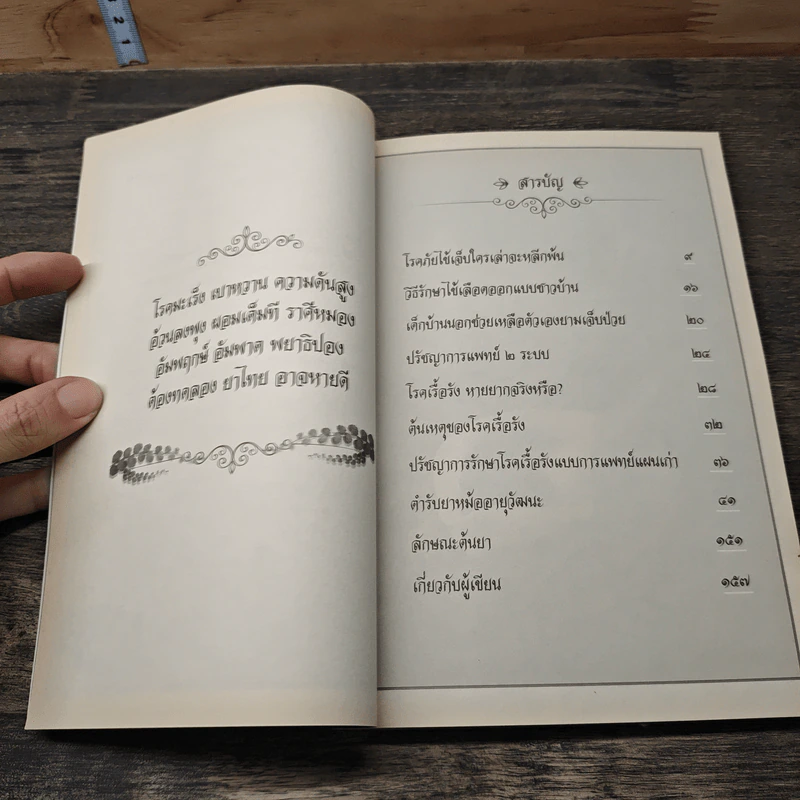 2 1
โรคมะเร็ง เบาหวาน ความดันสูง
อ้วนลงพุง ผอมเต็มที ราศีหมอง
อัมพฤกษ์ อัมพาต พยาธิปอง
ต้องทดลอง ยาไทย อาจหายดี
สารบัญ
โรคภัยไข้เจ็บใครเล่าจะหลีกพ้น ๙
วิธีรักษาไข้เลือดออกแบบชาวบ้าน ๑๖
เด็กบ้านนอกช่วยเหลือตัวเองยามเจ็บป่วย ๒๐
ปรัชญาการแพทย์ ๒ ระบบ ๒๔
โรคเรื้อรัง หายยากจริงหรือ? ๒๘
ต้นเหตุของโรคเรื้อรัง ๓๒
ปรัชญาการรักษาโรคเรื้อรังแบบการแพทย์แผนเก่า ๓๖
ตำรับยาหม้ออายุวัฒนะ ๔๑
ลักษณะต้นยา ๑๕๑
เกี่ยวกับผู้เขียน ๑๕๗